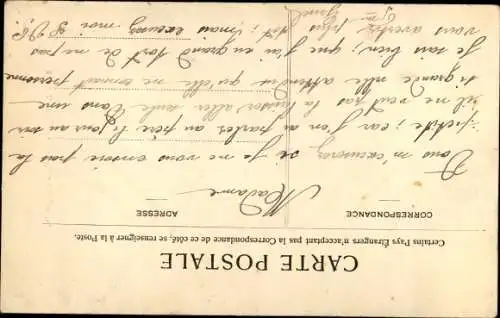 CARTE POSTALE
Certains Pays Étrangers n'acceptant pas la Correspondance de ce côté, se renseigner à la Poste.
CORRESPONDANCE
ADRESSE
Madame
Vous m'excuserez si je ne vous envoie pas la
petite ; car j'en ai parler au père le jour au soir
il ne veut pas la laisser aller seule dans une
si grande ville attendu qu'elle ne connait personne
Je sais bien, que j'ai eu grand tort de ne pas
vous avertir plus tôt ; mais excusez moi S.V.P.